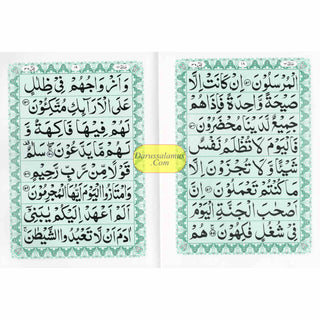 الْمُرْسَلُوْنَ ۝ اِنْ كَانَتْ اِلَّا
صَيْحَةً وَّاحِدَةً فَاِذَا هُمْ
جَمِيْعٌ لَّدَيْنَا مُحْضَرُوْنَ ۝
فَالْيَوْمَ لَا تُظْلَمُ نَفْسٌ
شَيْـًٔا وَّلَا تُجْزَوْنَ اِلَّا
مَا كُنْتُمْ تَعْمَلُوْنَ ۝ اِنَّ
اَصْحٰبَ الْجَنَّةِ الْيَوْمَ
فِيْ شُغُلٍ فٰكِهُوْنَ ۝ هُمْ
وَاَزْوَاجُهُمْ فِيْ ظِلٰلٍ
عَلَى الْاَرَآئِكِ مُتَّكِـُٔوْنَ ۝
لَهُمْ فِيْهَا فَاكِهَةٌ وَّ
لَهُمْ مَّا يَدَّعُوْنَ ۝ سَلٰمٌ
قَوْلًا مِّنْ رَّبٍّ رَّحِيْمٍ ۝
وَامْتَازُوا الْيَوْمَ اَيُّهَا الْمُجْرِمُوْنَ ۝
اَلَمْ اَعْهَدْ اِلَيْكُمْ يٰبَنِيْٓ
اٰدَمَ اَنْ لَّا تَعْبُدُوا الشَّيْطٰنَ
Darussalamus
.Com